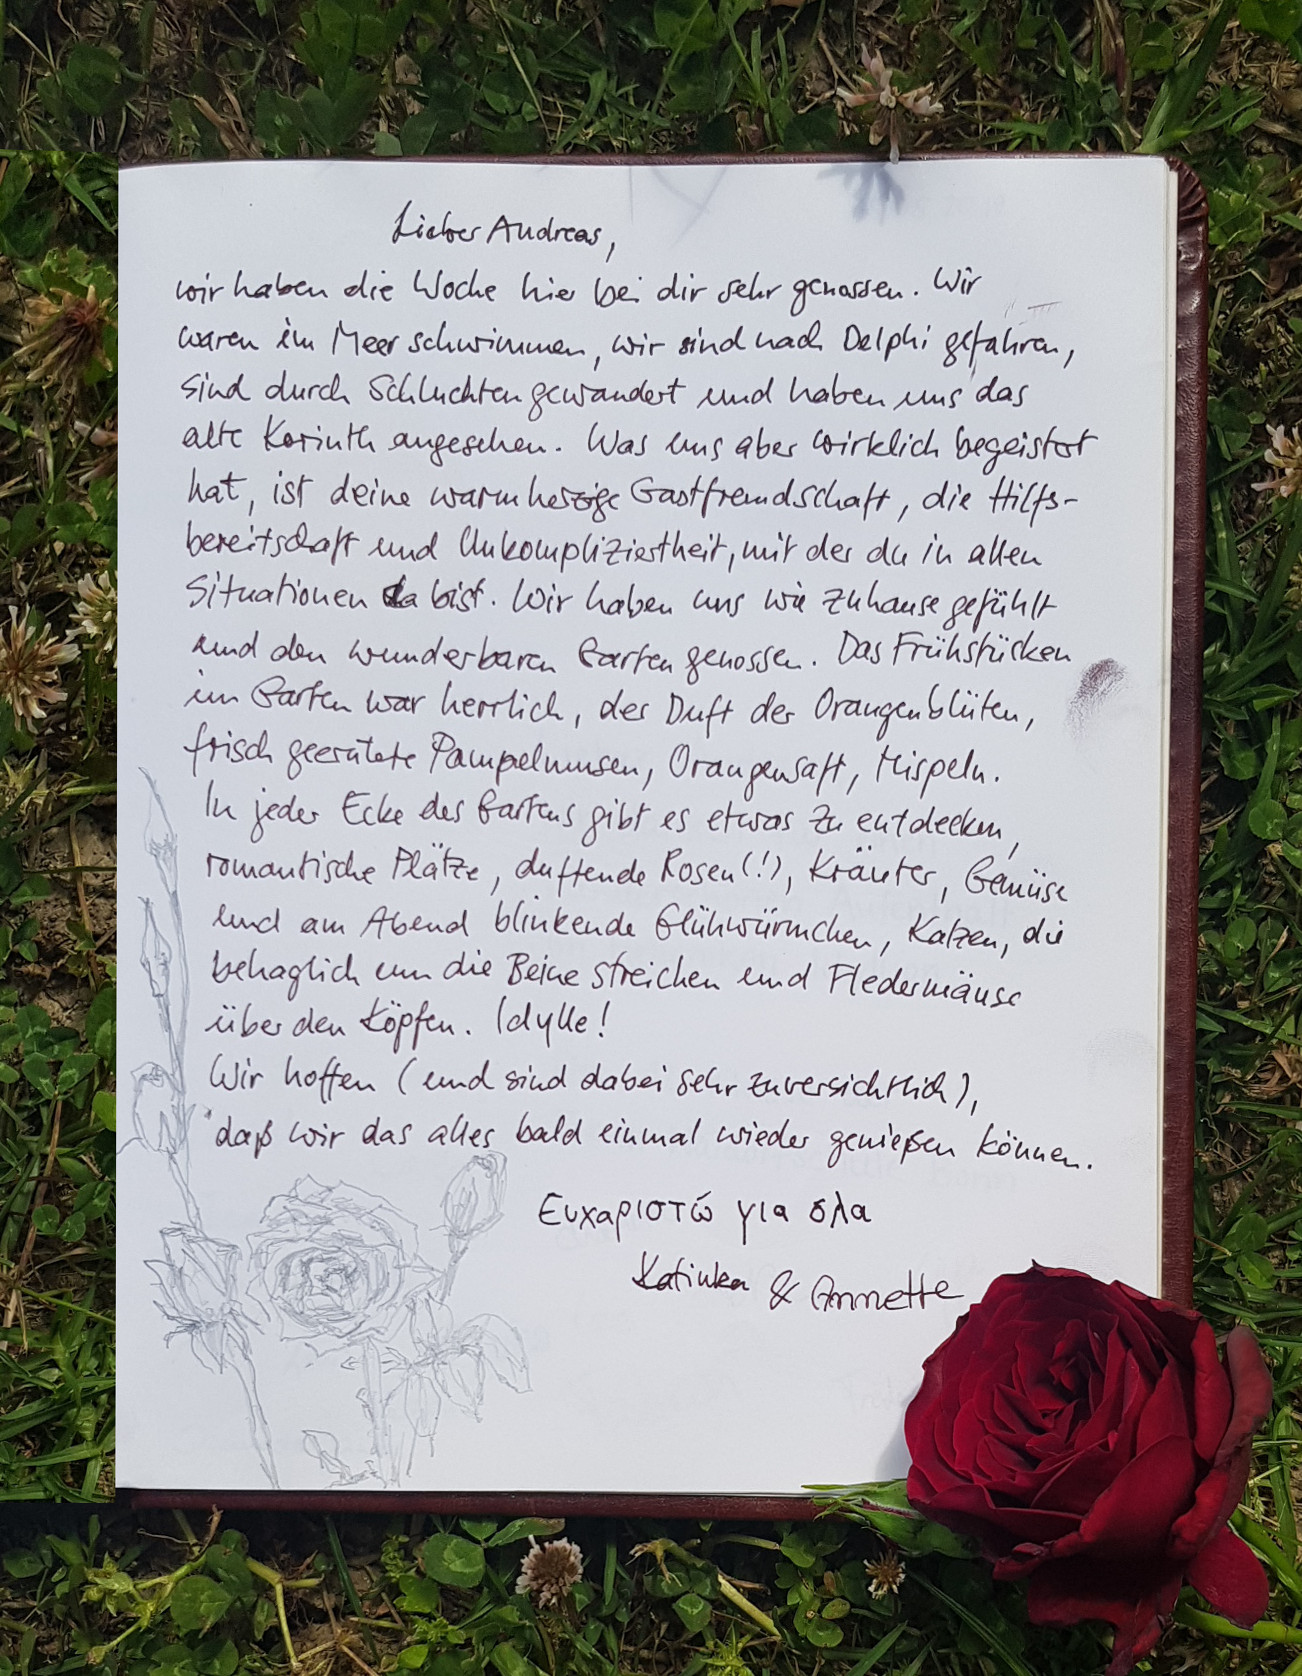 Lieber Andreas,
wir haben die Woche hier bei dir sehr genossen. Wir
waren im Meer schwimmen, wir sind nach Delphi gefahren,
sind durch Schluchten gewandert und haben uns das
alte Korinth angesehen. Was uns aber wirklich begeistert
hat, ist deine warmherzige Gastfreundschaft, die Hilfs-
bereitschaft und Unkompliziertheit, mit der du in allen
Situationen da bist. Wir haben uns wie zuhause gefühlt
und den wunderbaren Garten genossen. Das Frühstücken
im Garten war herrlich, der Duft der Orangenblüten,
frisch geerntete Pampelmusen, Orangensaft, Mispeln.
In jeder Ecke des Gartens gibt es etwas zu entdecken,
romantische Plätze, duftende Rosen (!), Kräuter, Gemüse
und am Abend blinkende Glühwürmchen, Katzen, die
behaglich um die Beine streichen und Fledermäuse
über den Köpfen. Idylle!
Wir hoffen (und sind dabei sehr zuversichtlich),
daß wir das alles bald einmal wieder genießen können.
Ευχαριστώ για όλα
Katinka & Annette